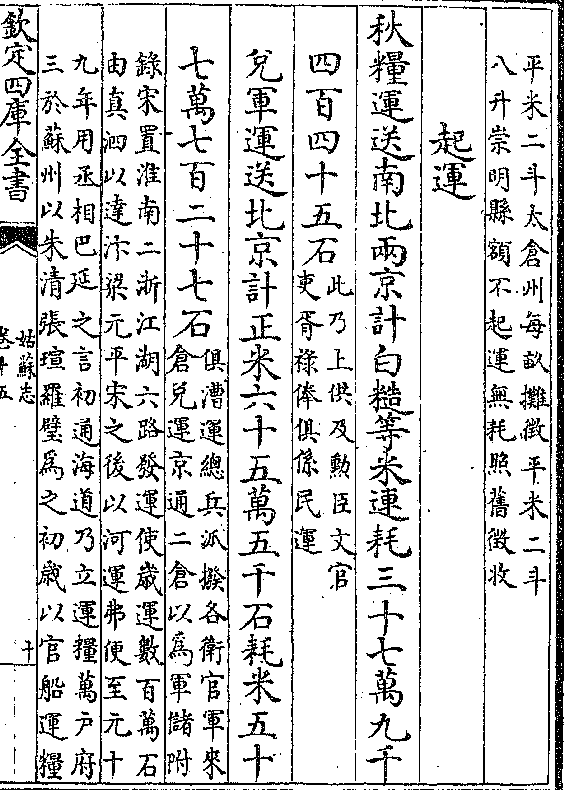 平米二斗太倉州每畝攤徵平米二斗
八升崇明縣額不起運無耗照舊徵收
起運
秋糧運送南北兩京計白糙等米連耗三十七萬九千
四百四十五石
此乃上供及勳臣文官
吏胥祿俸俱係民運
兌軍運送北京計正米六十五萬五千石耗米五十
七萬七百二十七石
俱漕運總兵派撥各衛官軍來
倉兌運京通二倉以爲軍儲附
錄宋置淮南二浙江湖六路發運使歲運數百萬石
由真泗以達汴梁元平宋之後以河運弗便至元十
九年用丞相巴延之言初通海道乃立運糧萬戶府
三於蘇州以朱清張瑄羅璧爲之初歲以官船運糧
欽定四庫全書
姑蘇志
卷十五
十